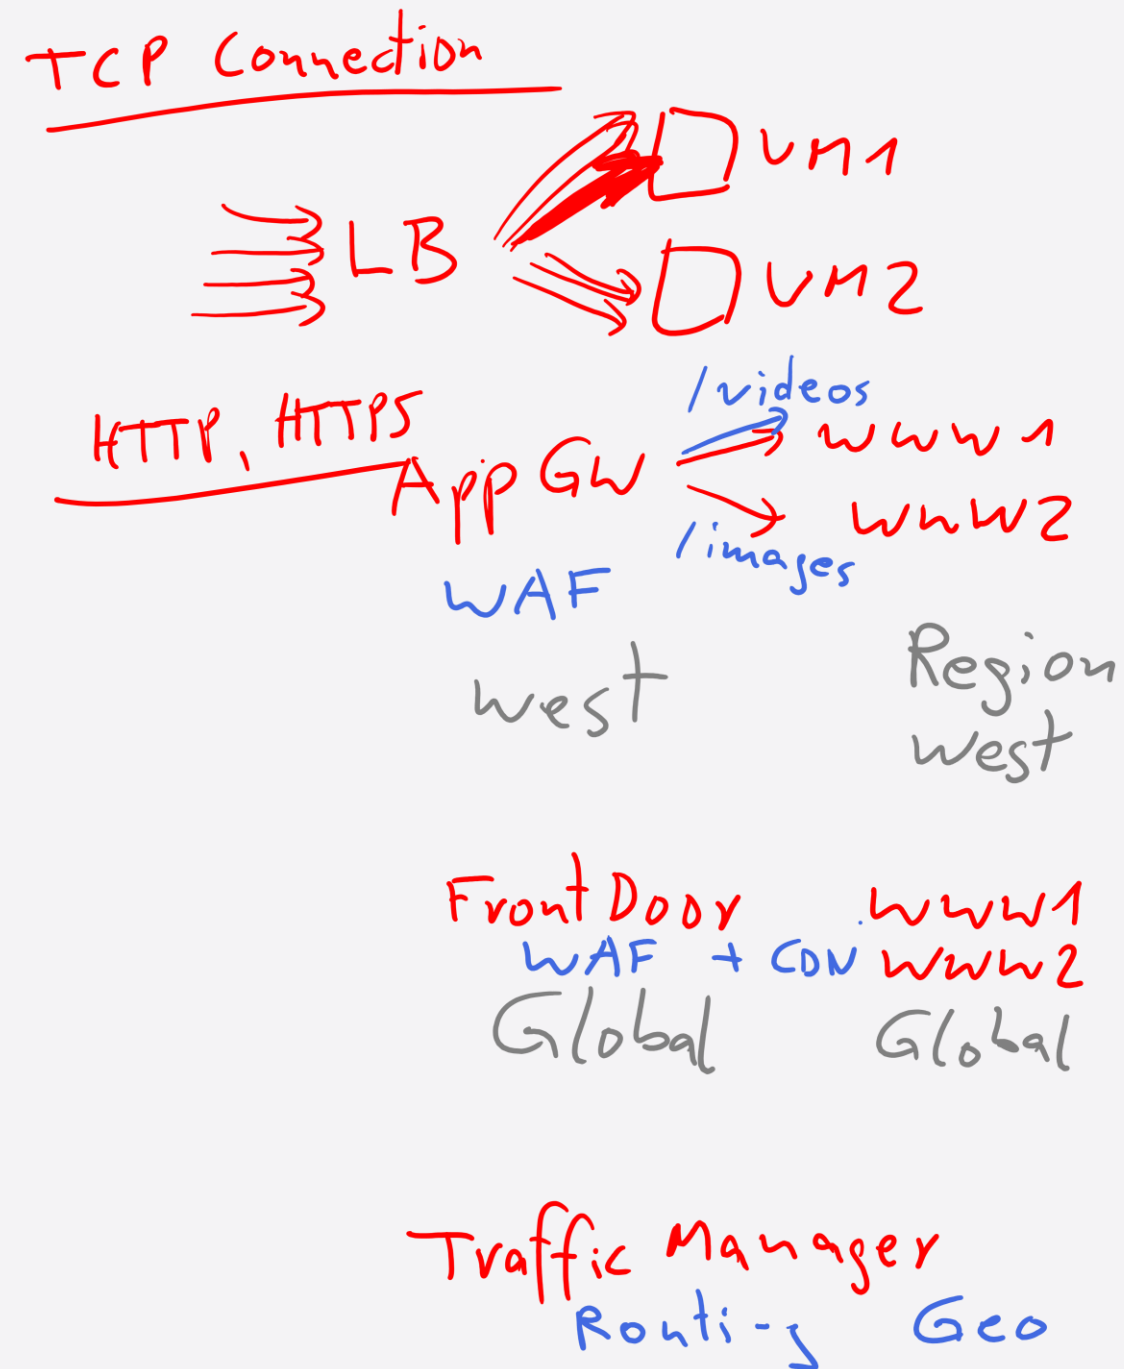 TCP Connection
VM1
LB
VM2
/videos
HTTP, HTTPS
www1
App GW
www2
/images
WAF
west
Region
west
Front Door www1
WAF + CDN www2
Global Global
Traffic Manager
Routing Geo